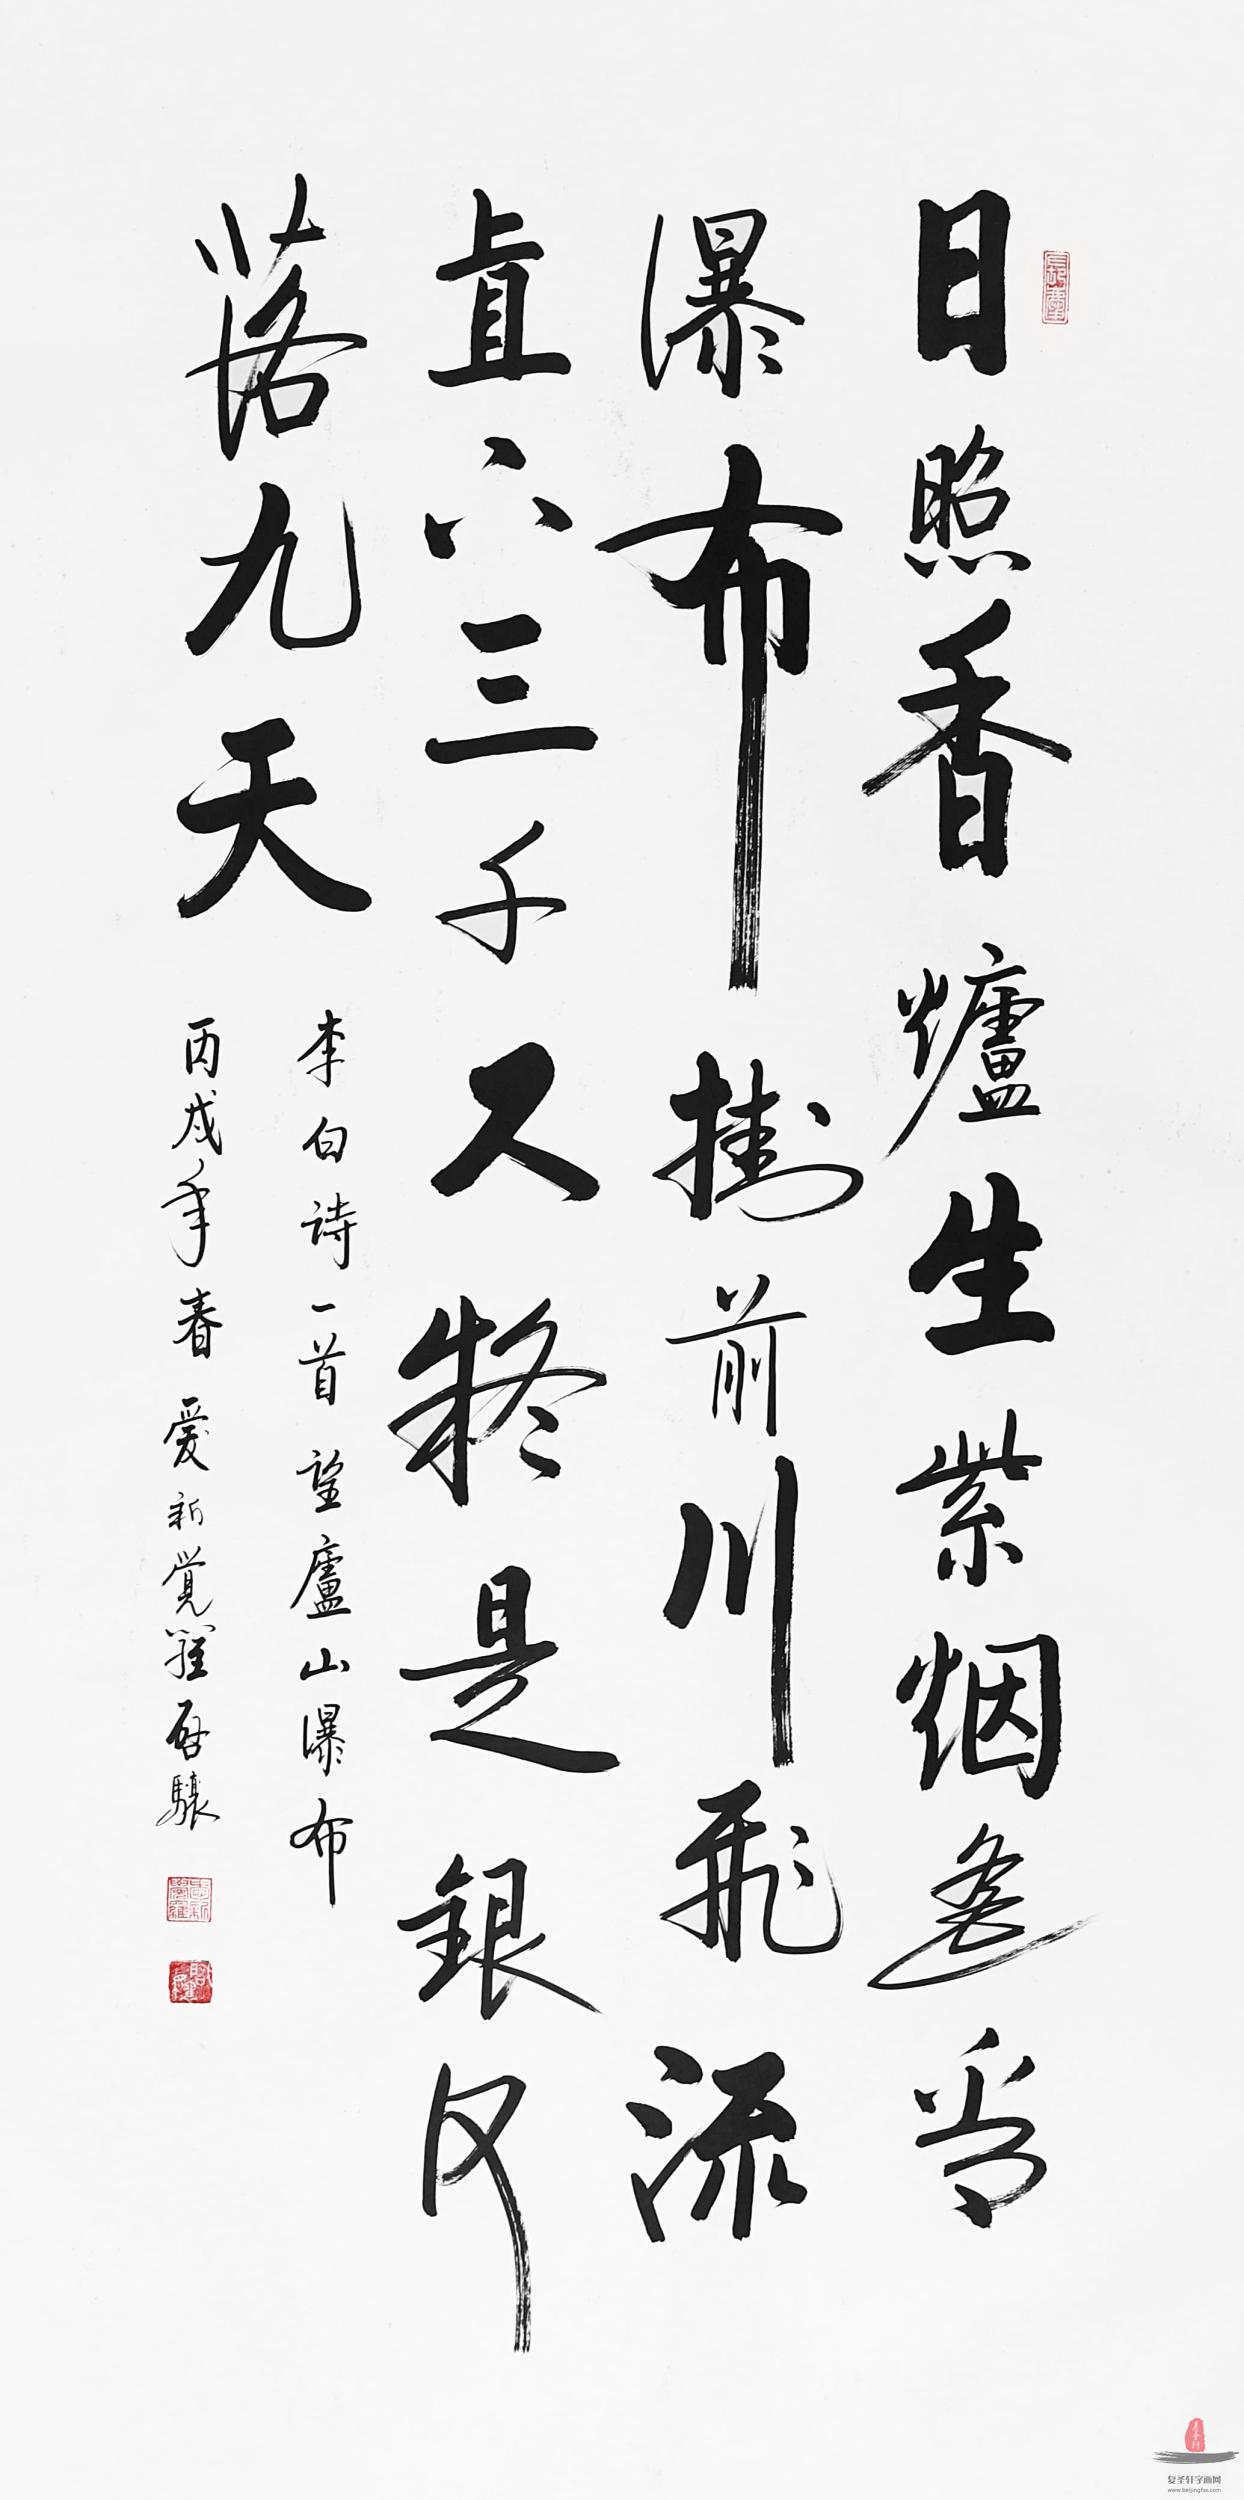 日照香爐生紫烟遙看
瀑布掛前川飛流
直下三千尺疑是銀河
落九天
李白詩一首望廬山瀑布
丙戌年春愛新覺羅啟驤
愛新覺羅
复圣轩字画网
www.beijingfsx.com